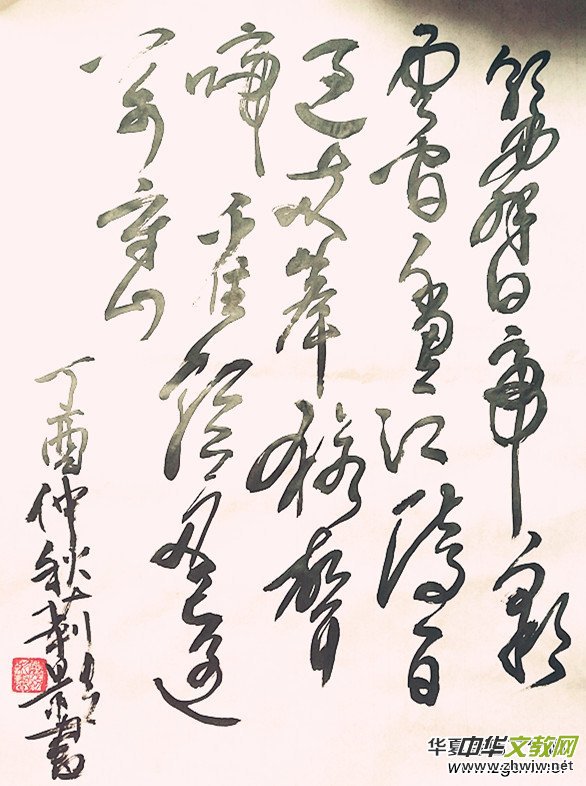 朝辞白帝彩
云间千里江陵一日
还两岸猿声
啼不住轻舟已过
万重山
丁酉仲秋 书
华夏
中华文教网
www.zhwjw.net